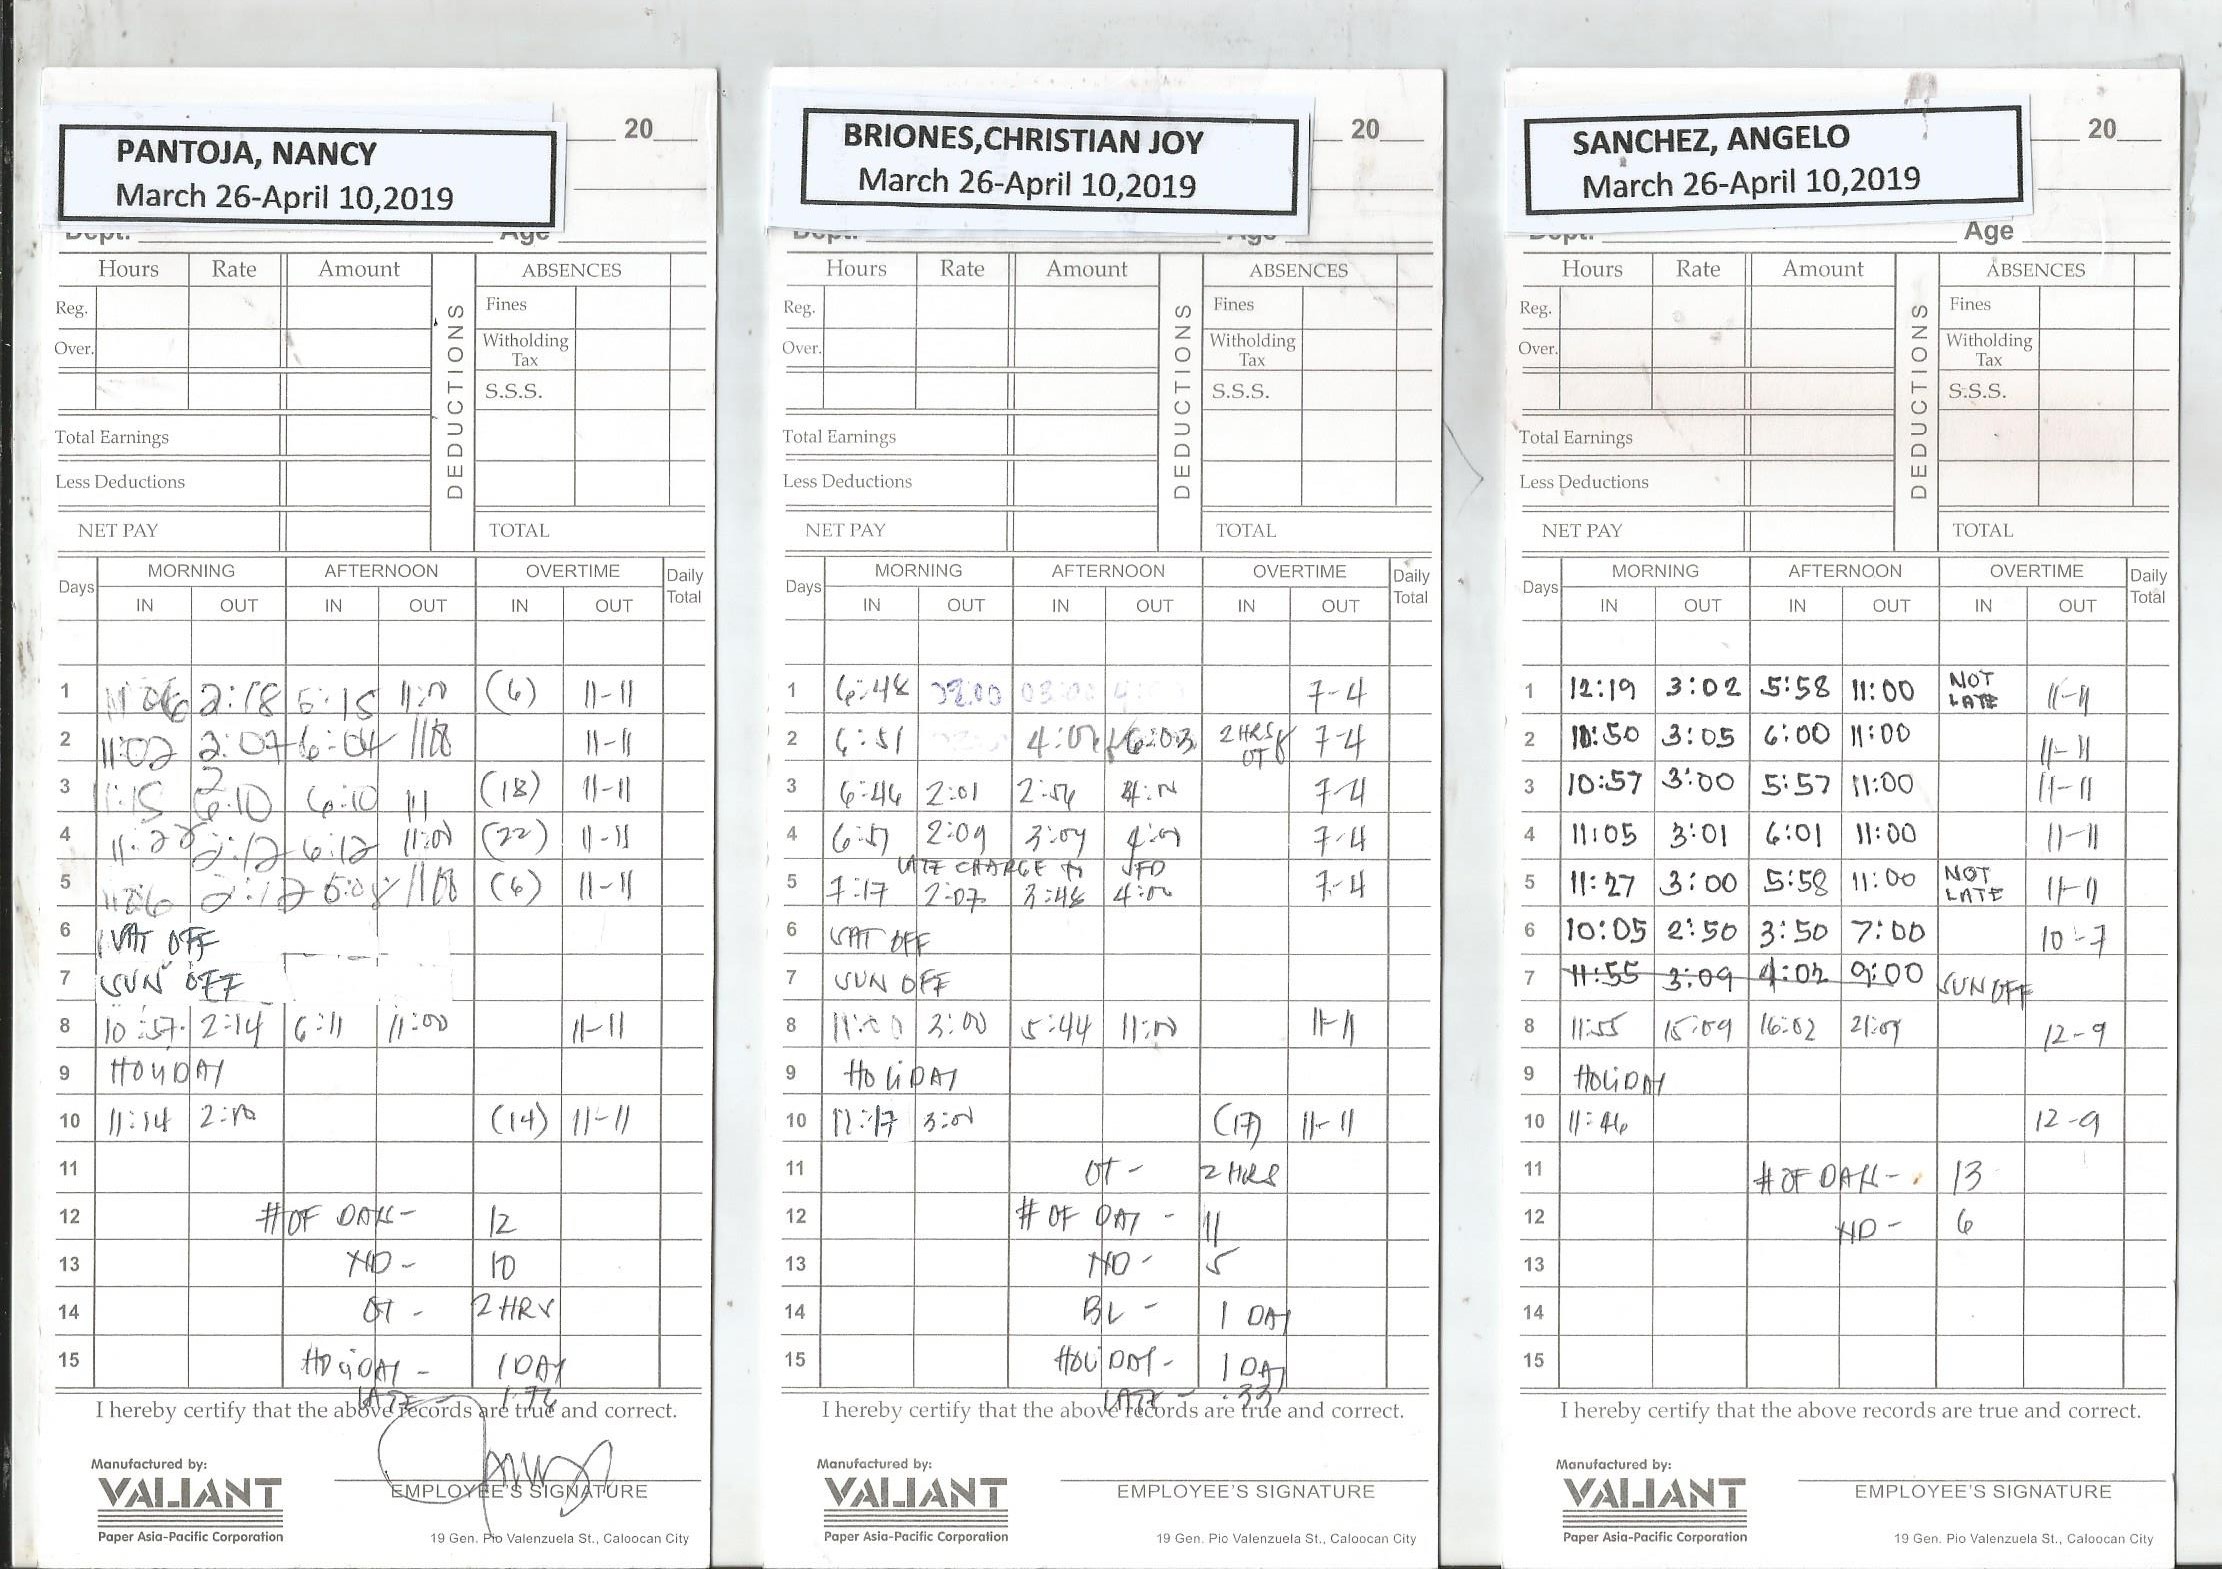 PANTOJA, NANCY
March 26-April 10,2019
20
Dept. Age
Hours Rate Amount DEDUCTIONS ABSENCES
Reg. Fines
Over. Witholding Tax
S.S.S.
Total Earnings
Less Deductions
NET PAY TOTAL
Days MORNING AFTERNOON OVERTIME Daily Total
IN OUT IN OUT IN OUT
1 2:18 (6) 11-11
2 11:02 2:07 6:04 11-11
3 6:10 (18) 11-11
4 2:12 6:12 11:00 (22) 11-11
5 (6) 11-11
6 SAT OFF
7 SUN OFF
8 10:57 2:14 6:11 11:00 11-11
9 HOLIDAY
10 11:14 2:10 (14) 11-11
11
12 # OF DAYS - 12
13 ND - 10
14 OT - 2 HRS
15 HOLIDAY - 1 DAY
LATE -
I hereby certify that the above records are true and correct.
Manufactured by:
VALIANT
EMPLOYEE'S SIGNATURE
Paper Asia-Pacific Corporation 19 Gen. Pio Valenzuela St., Caloocan City
BRIONES,CHRISTIAN JOY
March 26-April 10,2019
20
Dept. Age
Hours Rate Amount DEDUCTIONS ABSENCES
Reg. Fines
Over. Witholding Tax
S.S.S.
Total Earnings
Less Deductions
NET PAY TOTAL
Days MORNING AFTERNOON OVERTIME Daily Total
IN OUT IN OUT IN OUT
1 6:48 7-4
2 6:51 6:03 2 HRS OT 7-4
3 6:46 2:01 2:56 7-4
4 2:09 3:09 7-4
LATE CHARGE
5 7:17 2:07 3:48 4:00 7-4
6 SAT OFF
7 SUN OFF
8 3:00 5:44 11:00 11-11
9 HOLIDAY
10 11:17 3:00 (17) 11-11
11 OT - 2 HRS
12 # OF DAY - 11
13 ND - 5
14 BL - 1 DAY
15 HOLIDAY - 1 DAY
LATE - .33
I hereby certify that the above records are true and correct.
Manufactured by:
VALIANT
EMPLOYEE'S SIGNATURE
Paper Asia-Pacific Corporation 19 Gen. Pio Valenzuela St., Caloocan City
SANCHEZ, ANGELO
March 26-April 10,2019
20
Dept. Age
Hours Rate Amount DEDUCTIONS ABSENCES
Reg. Fines
Over. Witholding Tax
S.S.S.
Total Earnings
Less Deductions
NET PAY TOTAL
Days MORNING AFTERNOON OVERTIME Daily Total
IN OUT IN OUT IN OUT
1 12:19 3:02 5:58 11:00 NOT LATE 11-11
2 10:50 3:05 6:00 11:00 11-11
3 10:57 3:00 5:57 11:00 11-11
4 11:05 3:01 6:01 11:00 11-11
5 11:27 3:00 5:58 11:00 NOT LATE 11-11
6 10:05 2:50 3:50 7:00 10-7
7 11:55 3:09 4:02 9:00 SUN OFF
8 11:55 15:09 16:02 21:09 12-9
9 HOLIDAY
10 11:46 12-9
11 # OF DAYS - 13
12 ND - 6
13
14
15
I hereby certify that the above records are true and correct.
Manufactured by:
VALIANT
EMPLOYEE'S SIGNATURE
Paper Asia-Pacific Corporation 19 Gen. Pio Valenzuela St., Caloocan City